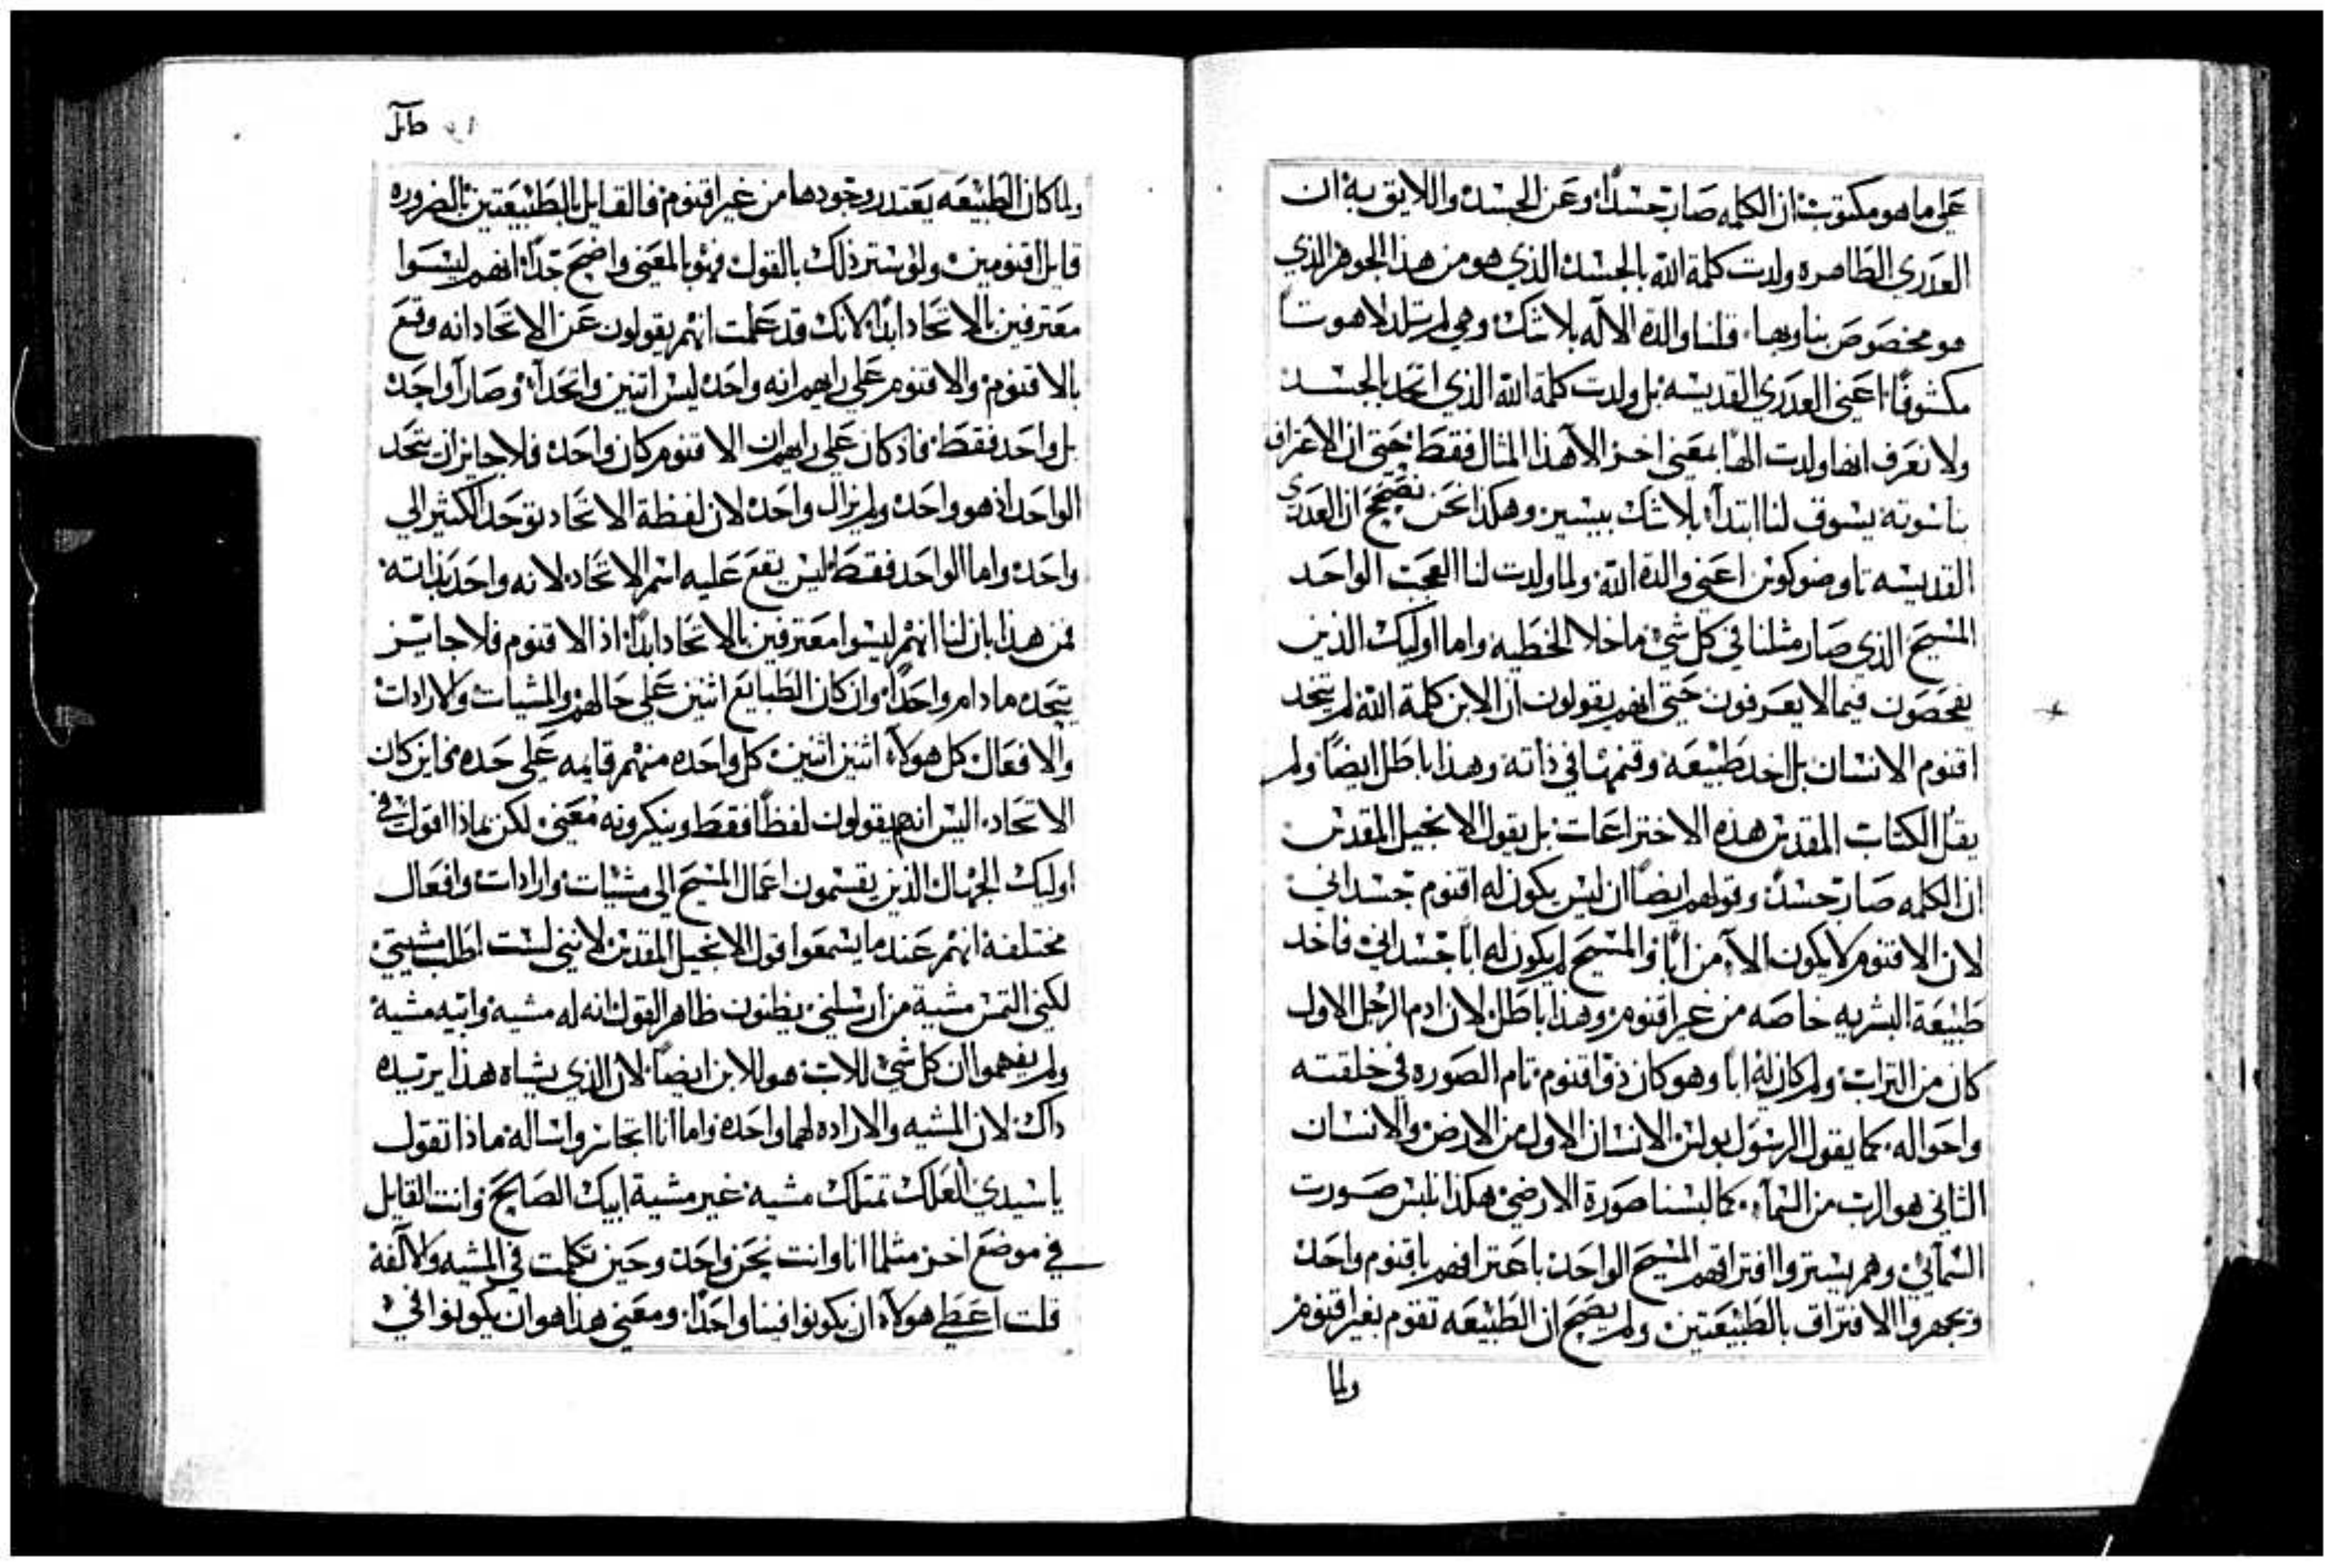 على ما هو مكتوب ان الكلمه صار جسدًا وعن الجسد واللايق به ان
العدري الطاهره ولدت كلمة الله بالجسد الذي هو من هذا الجوهر الذي
هو مخصوص بنا وبها قلنا والدة الاله بلا شك وهي لم تلد لاهوتاً
مكشوفًا اعني العدري القديسه بل ولدت كلمة الله الذي اتحد بالجسد
ولا نعرف انها ولدت الهًا بمعنى اخر الا هذا المثال فقط حتى ان الاعتراف
بناسوته يسوق لنا ابتدأ بلا شك بيسير وهكذا نحن نصحح ان العدري
القديسه تاوضوكوس اعني والدة الله ولما ولدت لنا العجب الواحد
المسيح الذي صار مثلنا في كل شي ما خلا الخطيه واما اوليك الذين
يفحصون فيما لا يعرفون حتى انهم يقولون ان الابن كلمة الله لم يتحد
اقنوم الانسان بل اخد طبيعه وقنمها في ذاته وهذا باطل ايضاً ولم
يقل الكتاب المقدس هذه الاختراعات بل يقول الانجيل المقدس
ان الكلمه صار جسد وقولهم ايضاً ان ليس يكون له اقنوم جسداني
لان الاقنوم لا يكون الا من ابًا والمسيح لم يكون له اباً جسداني فاخد
طبيعة البشريه خاصه من غير اقنوم وهذا باطل لان ادم الرجل الاول
كان من التراب ولم كان له اباً وهو كان ذو اقنوم تام الصوره في خلقته
واحواله كما يقول الرسول بولس الانسان الاول من الارض والانسان
الثاني هو الرب من السمآء كما لبسنا صورة الارضي هكذا نلبس صورت
السمآئي وهم يستروا افتراقهم المسيح الواحد باعترافهم باقنوم واحد
ويجهروا الافتراق بالطبيعتين ولم يصح ان الطبيعه تقوم بغير اقنوم
ولما
ولما كان الطبيعه يعتدر وجودها من غير اقنوم فالقايل بالطبيعتين بالضروره
قايل اقنومين ولو ستر ذلك بالقول فهو بالمعنى واضح جداً انهم ليسوا
معترفين بالاتحاد ابداً لانك قد علمت انهم يقولون عن الاتحاد انه وقع
بالاقنوم والاقنوم على رايهم انه واحد ليس اتنين واتحدآ وصارآ واحد
بل واحد فقط فاذ كان على رايهم ان الاقنوم كان واحد فلا جايز ان يتحد
الواحد اذ هو واحد ولم يزال واحد لان لفظة الاتحاد توحد الكثير الي
واحد واما الواحد فقط ليس يقع عليه اسم الاتحاد لانه واحد بذاته
فمن هذا بان لنا انهم ليسوا معترفين بالاتحاد ابداً اذ الاقنوم فلا جايز
يتحد ما دام واحداً وان كان الطبايع اثنين على حالهم والمشيات والارادات
والافعال كل هولاء اثنين اثنين كل واحده منهم قايمه على حده فاين كان
الاتحاد اليس انهم يقولون لفظاً فقط وينكرونه معنى لكن بماذا اقول في
اوليك الجهال الذين يقسمون اعمال المسيح الى مشيات وارادات وافعال
مختلفة انهم عند ما يسمعوا قول الانجيل المقدس لانني لست اطلب مشيتي
لكني التمس مشية من ارسلني يظنون ظاهر القول انه له مشيه وابيه مشية
ولم يفهموا ان كل شي للاب هو للابن ايضاً لان الذي يشاه هذا يرتيده
داك لان المشيه والاراده لهما واحده واما انا اتجاسر واساله ماذا تقول
يا سيدي العلك تمتلك مشيه غير مشية ابيك الصالح وانت القايل
في موضع اخر مثلما انا وانت نحن واحد وحين تكلمت في المشيه والالفة
قلت اعطي هولاء ان يكونوا فينا واحداً ومعنى هذا هو ان يكونوا في